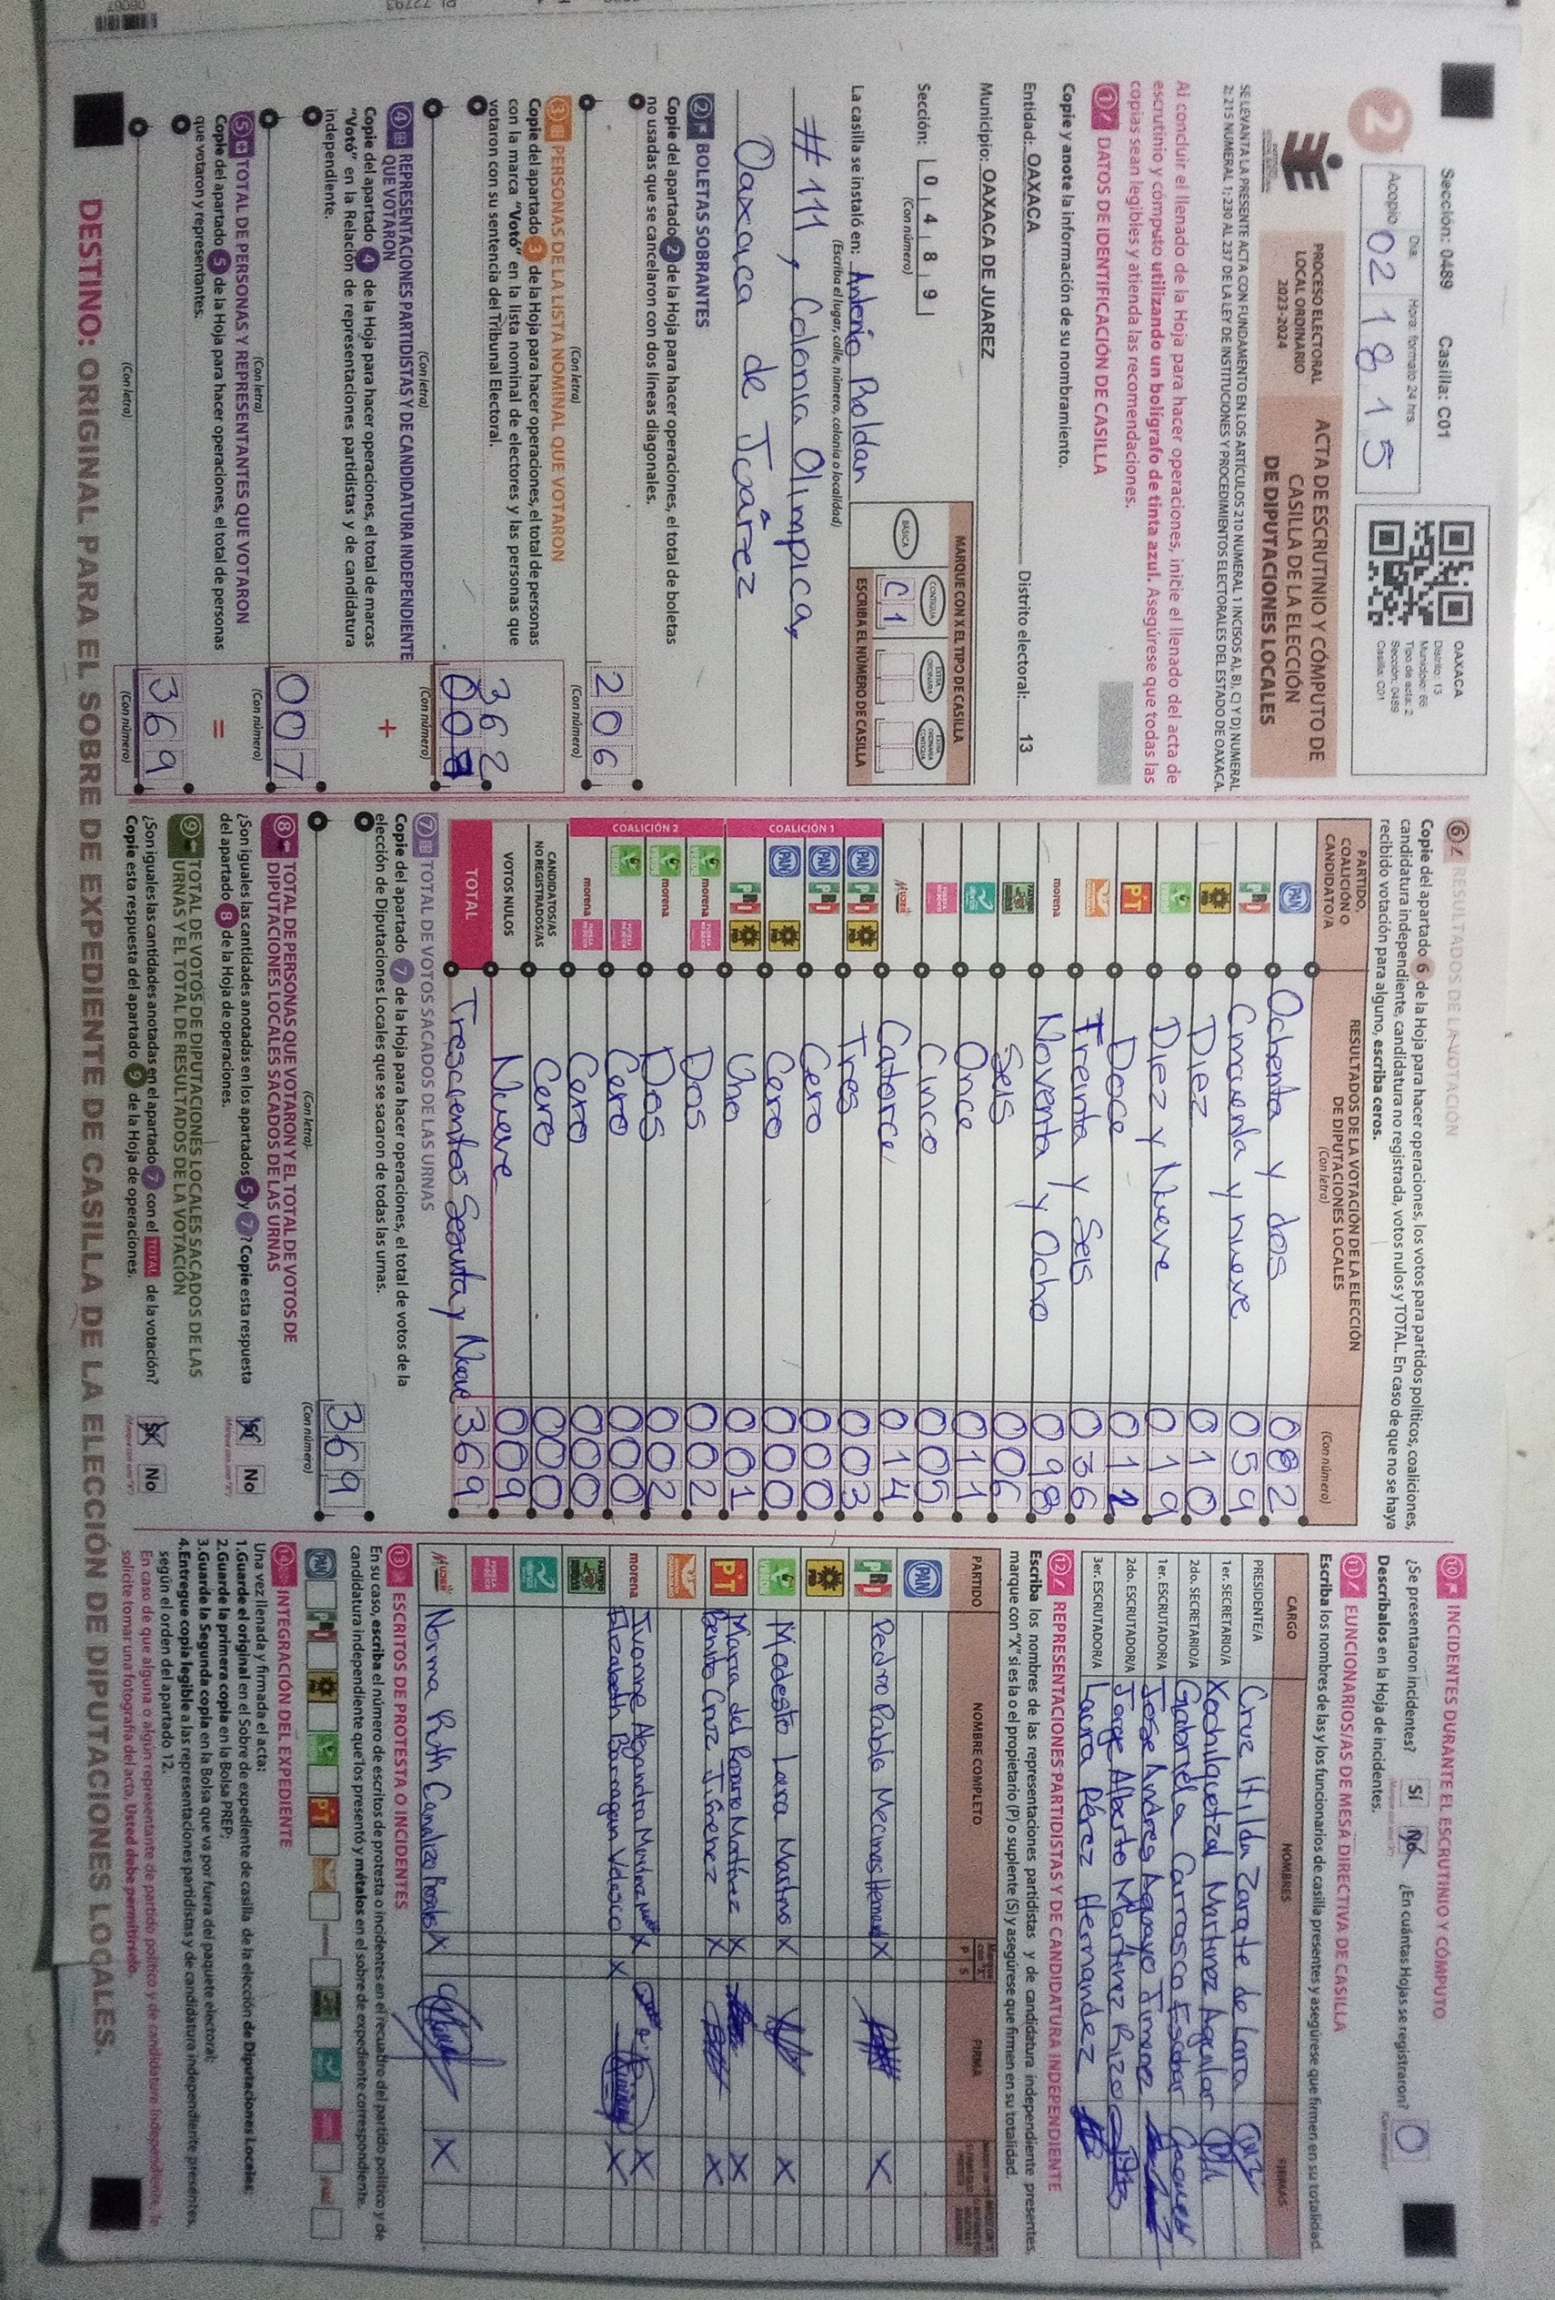 Sección: 0489 Casilla: C01
2
Día: Hora: formato 24 hrs.
Acopio 02 18 15
OAXACA
Distrito: 13
Municipio: 66
Tipo de acta: 2
Sección: 0489
Casilla: C01
PROCESO ELECTORAL
LOCAL ORDINARIO
2023-2024
ACTA DE ESCRUTINIO Y CÓMPUTO DE
CASILLA DE LA ELECCIÓN
DE DIPUTACIONES LOCALES
SE LEVANTA LA PRESENTE ACTA CON FUNDAMENTO EN LOS ARTÍCULOS 210 NUMERAL 1 INCISOS A), B), C) Y D) NUMERAL
2; 215 NUMERAL 1; 230 AL 237 DE LA LEY DE INSTITUCIONES Y PROCEDIMIENTOS ELECTORALES DEL ESTADO DE OAXACA.
Al concluir el llenado de la Hoja para hacer operaciones, inicie el llenado del acta de
escrutinio y cómputo utilizando un bolígrafo de tinta azul. Asegúrese que todas las
copias sean legibles y atienda las recomendaciones.
1 DATOS DE IDENTIFICACIÓN DE CASILLA
Copie y anote la información de su nombramiento.
Entidad: OAXACA Distrito electoral: 13
Municipio: OAXACA DE JUAREZ
Sección: 0 4 8 9
(Con número)
MARQUE CON X EL TIPO DE CASILLA
BÁSICA CONTIGUA EXTRAORDINARIA EXTRAORDINARIA CONTIGUA
C 1
ESCRIBA EL NÚMERO DE CASILLA
La casilla se instaló en: Antonio Roldan
(Escriba el lugar, calle, número, colonia o localidad)
#111, Colonia Olimpica,
Oaxaca de Juárez
2 BOLETAS SOBRANTES
Copie del apartado 2 de la Hoja para hacer operaciones, el total de boletas
no usadas que se cancelaron con dos líneas diagonales.
206
(Con letra) (Con número)
3 PERSONAS DE LA LISTA NOMINAL QUE VOTARON
Copie del apartado 3 de la Hoja para hacer operaciones, el total de personas
con la marca "Votó" en la lista nominal de electores y las personas que
votaron con su sentencia del Tribunal Electoral.
362
(Con letra) (Con número)
4 REPRESENTACIONES PARTIDISTAS Y DE CANDIDATURA INDEPENDIENTE
QUE VOTARON
Copie del apartado 4 de la Hoja para hacer operaciones, el total de marcas
"Votó" en la Relación de representaciones partidistas y de candidatura
independiente.
+
007
(Con letra) (Con número)
5 TOTAL DE PERSONAS Y REPRESENTANTES QUE VOTARON
Copie del apartado 5 de la Hoja para hacer operaciones, el total de personas
que votaron y representantes.
=
369
(Con letra) (Con número)
6 RESULTADOS DE LA VOTACIÓN
Copie del apartado 6 de la Hoja para hacer operaciones, los votos para partidos políticos, coaliciones,
candidatura independiente, candidatura no registrada, votos nulos y TOTAL. En caso de que no se haya
recibido votación para alguno, escriba ceros.
PARTIDO,
COALICIÓN O
CANDIDATO/A
RESULTADOS DE LA VOTACIÓN DE LA ELECCIÓN
DE DIPUTACIONES LOCALES
(Con letra) (Con número)
PAN Ochenta y dos 082
PRI Cincuenta y nueve 059
PRD Diez 010
VERDE Diez y Nueve 019
PT Doce 012
Treinta y Seis 036
morena Noventa y Ocho 098
Seis 006
Once 011
Cinco 005
MUJER Catorce 014
COALICIÓN 1
PAN PRI PRD Tres 003
PAN PRI Cero 000
PAN PRD Cero 000
PRI PRD Uno 001
COALICIÓN 2
VERDE morena FUERZA Dos 002
VERDE morena Dos 002
VERDE FUERZA Cero 000
morena FUERZA Cero 000
CANDIDATOS/AS
NO REGISTRADOS/AS Cero 000
VOTOS NULOS Nueve 009
TOTAL Trescientos Sesenta y Nueve 369
7 TOTAL DE VOTOS SACADOS DE LAS URNAS
Copie del apartado 7 de la Hoja para hacer operaciones, el total de votos de la
elección de Diputaciones Locales que se sacaron de todas las urnas.
369
(Con letra) (Con número)
8 TOTAL DE PERSONAS QUE VOTARON Y EL TOTAL DE VOTOS DE
DIPUTACIONES LOCALES SACADOS DE LAS URNAS
¿Son iguales las cantidades anotadas en los apartados 5 y 7? Copie esta respuesta
del apartado 8 de la Hoja de operaciones.
Sí No
9 TOTAL DE VOTOS DE DIPUTACIONES LOCALES SACADOS DE LAS
URNAS Y EL TOTAL DE RESULTADOS DE LA VOTACIÓN
¿Son iguales las cantidades anotadas en el apartado 7 con el TOTAL de la votación?
Copie esta respuesta del apartado 9 de la Hoja de operaciones.
Sí No
10 INCIDENTES DURANTE EL ESCRUTINIO Y CÓMPUTO
¿Se presentaron incidentes? Sí No ¿En cuántas Hojas se registraron? 0
Descríbalos en la Hoja de incidentes.
11 FUNCIONARIOS/AS DE MESA DIRECTIVA DE CASILLA
Escriba los nombres de las y los funcionarios de casilla presentes y asegúrese que firmen en su totalidad.
CARGO NOMBRES FIRMAS
PRESIDENTE/A Cruz Hilda Zarate de Lara
1er. SECRETARIO/A Xochilquetzal Martinez Aguilar
2do. SECRETARIO/A Gabriela Carrasco Escobar
1er. ESCRUTADOR/A Jose Andres Aguayo Jimenez
2do. ESCRUTADOR/A Jorge Alberto Martinez Rizo
3er. ESCRUTADOR/A Laura Pérez Hernandez
12 REPRESENTACIONES PARTIDISTAS Y DE CANDIDATURA INDEPENDIENTE
Escriba los nombres de las representaciones partidistas y de candidatura independiente presentes,
marque con "X" si es la o el propietario (P) o suplente (S) y asegúrese que firmen en su totalidad.
PARTIDO NOMBRE COMPLETO P S FIRMA
PAN
PRI Pedro Pablo Mecinas Hernandez X X
PRD
VERDE Modesto Lara Mastros X X
PT Maria del Rosario Martínez X X
Benito Cruz Jimenez X X
morena Ivonne Alejandra Martinez X X
Elizabeth Barragan Velasco X X
MUJER Norma Ruth Canalizo Rosales X X
13 ESCRITOS DE PROTESTA O INCIDENTES
En su caso, escriba el número de escritos de protesta o incidentes en el recuadro del partido político y de
candidatura independiente que los presentó y métalos en el sobre de expediente correspondiente.
PAN PRI PRD VERDE PT morena
14 INTEGRACIÓN DEL EXPEDIENTE
Una vez llenada y firmada el acta:
1.Guarde el original en el Sobre de expediente de casilla de la elección de Diputaciones Locales;
2.Guarde la primera copia en la Bolsa PREP;
3.Guarde la Segunda copia en la Bolsa que va por fuera del paquete electoral;
4.Entregue copia legible a las representaciones partidistas y de candidatura independiente presentes,
según el orden del apartado 12.
En caso de que alguna o algún representante de partido político y de candidatura independiente, le
solicite tomar una fotografía del acta, Usted debe permitírselo.
DESTINO: ORIGINAL PARA EL SOBRE DE EXPEDIENTE DE CASILLA DE LA ELECCIÓN DE DIPUTACIONES LOCALES.